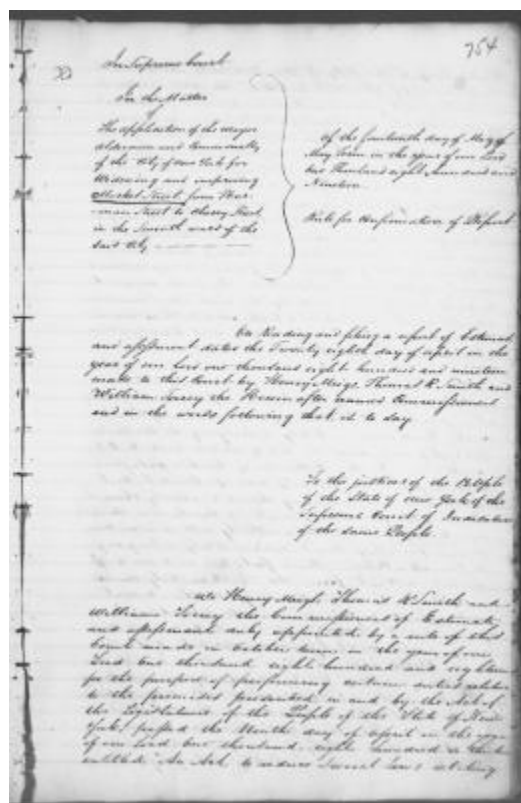 354
In Supreme Court
In the Matter
of
The application of the Mayor
aldermen and Commonalty
of the City of New York for
Widening and improving
Market Street from
Street to Cherry Street
in the Seventh ward of the
said City
Of the fourteenth day of May of
May Term in the year of our Lord
One Thousand eight hundred and
Nineteen
Rule for Confirmation of Report
On Reading and filing a report of Estimate
and assessment dated the Twenty eighth day of April in the
year of our Lord one thousand eight hundred and nineteen
made to this Court by Henry Meigs Thomas R. Smith and
William the Herein after named Commissioners
and in the words following that is to say
To the justices of the People
of the State of New York of the
Supreme Court of Judicature
of the same People
We Henry Meigs Thomas R Smith and
William the Commissioners of Estimate
and assessment duly appointed by a rule of this
Court made in October term in the year of our
Lord one thousand eight hundred and eighteen
for the purpose of performing certain duties relative
to the premises in and by the Act of
the Legislature of the People of the State of New
York passed the Ninth day of April in the year
of our Lord one thousand eight hundred
entitled An Act to reduce Several laws relating